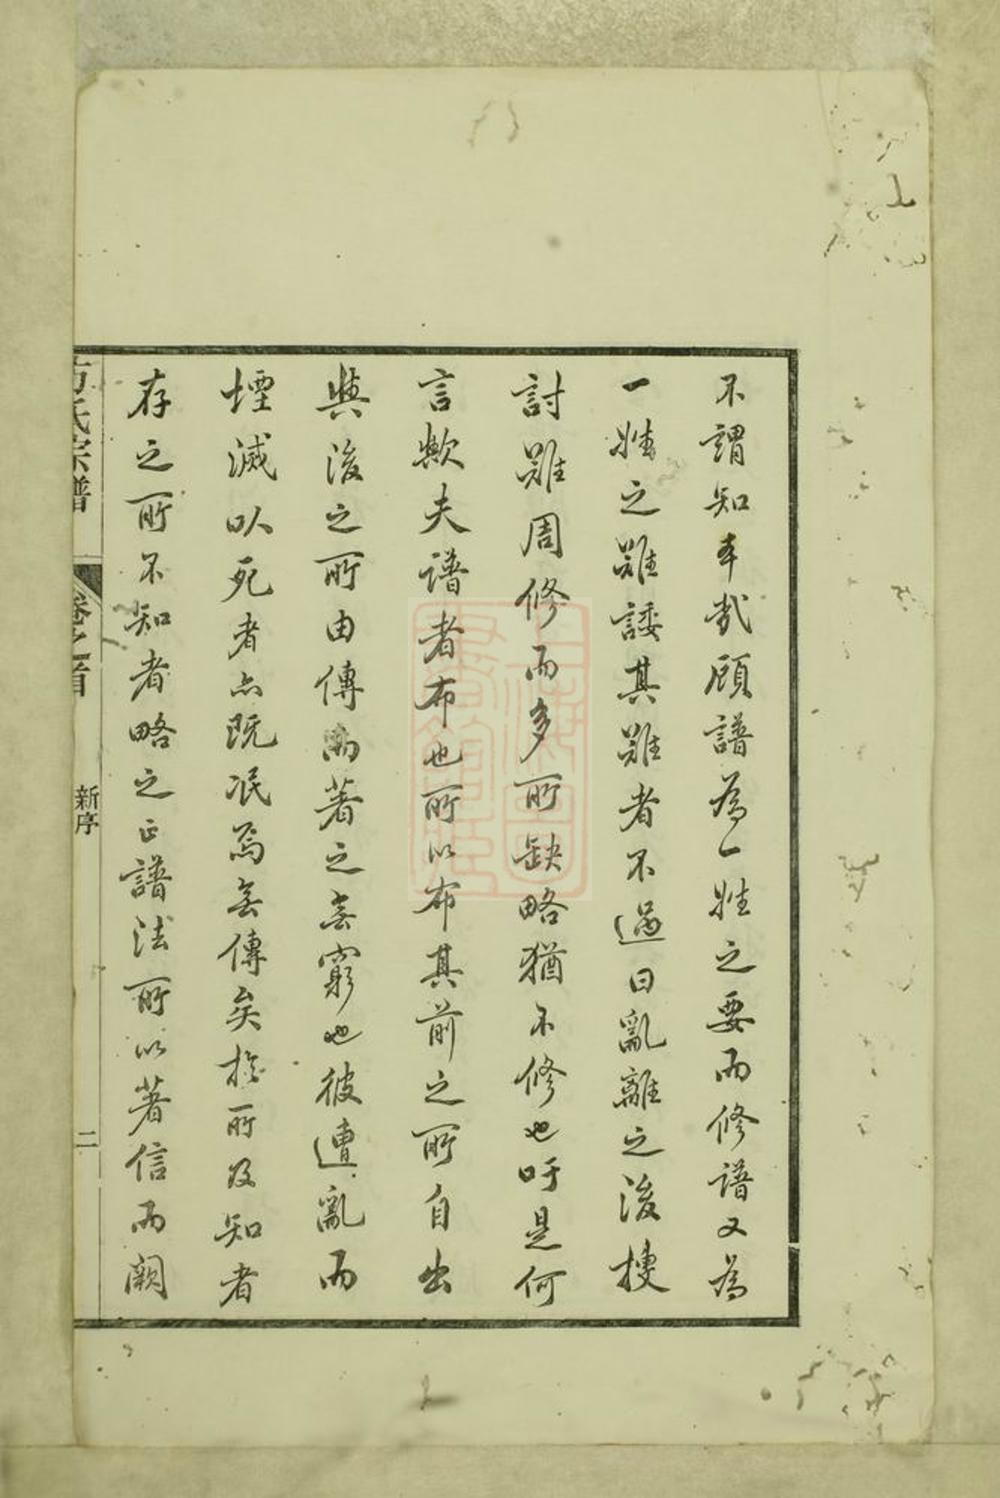 不謂知本哉顧譜為一姓之要而修譜又為
一姓之難諉其難者不過曰亂離之後搜
討難周修而多所缺略猶不修也吁是何
言歟夫譜者布也所以布其前之所自出
與後之所由傳而著之無窮也彼遭亂而
堙滅以死者亦既泯焉無傳矣於所及知者
存之所不知者略之正譜法所以著信而闕
方氏宗譜
卷之首
新序
二